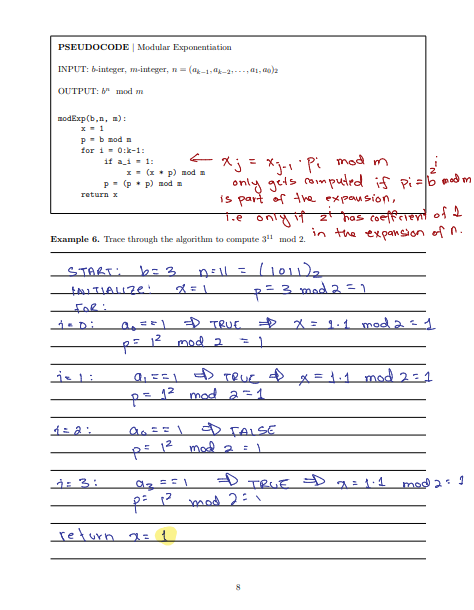 PSEUDOCODE | Modular Exponentiation
INPUT: b-integer, m-integer, n = (aₖ₋₁, aₖ₋₂, . . . , a₁, a₀)₂
OUTPUT: bⁿ mod m
modExp(b,n, m):
x = 1
p = b mod m
for i = 0:k-1:
if a_i = 1:
x = (x * p) mod m
p = (p * p) mod m
return x
← xⱼ = xⱼ₋₁ · pᵢ mod m
only gets computed if pᵢ = b^2^i mod m
is part of the expansion,
i.e only if 2ⁱ has coefficient of 1
in the expansion of n.
Example 6. Trace through the algorithm to compute 3¹¹ mod 2.
START: b= 3 n=11 = (1011)₂
INITIALIZE: x=1 p= 3 mod 2 = 1
FOR:
i= 0: a₀ == 1 ⇒ TRUE ⇒ x = 1·1 mod 2 = 1
p= 1² mod 2 = 1
i= 1: a₁ == 1 ⇒ TRUE ⇒ x = 1·1 mod 2 = 1
p= 1² mod 2 = 1
i= 2: a₀ == 1 ⇒ FALSE
p= 1² mod 2 = 1
i= 3: a₃ == 1 ⇒ TRUE ⇒ x = 1·1 mod 2 = 1
p= 1² mod 2 = 1
return x= 1
8